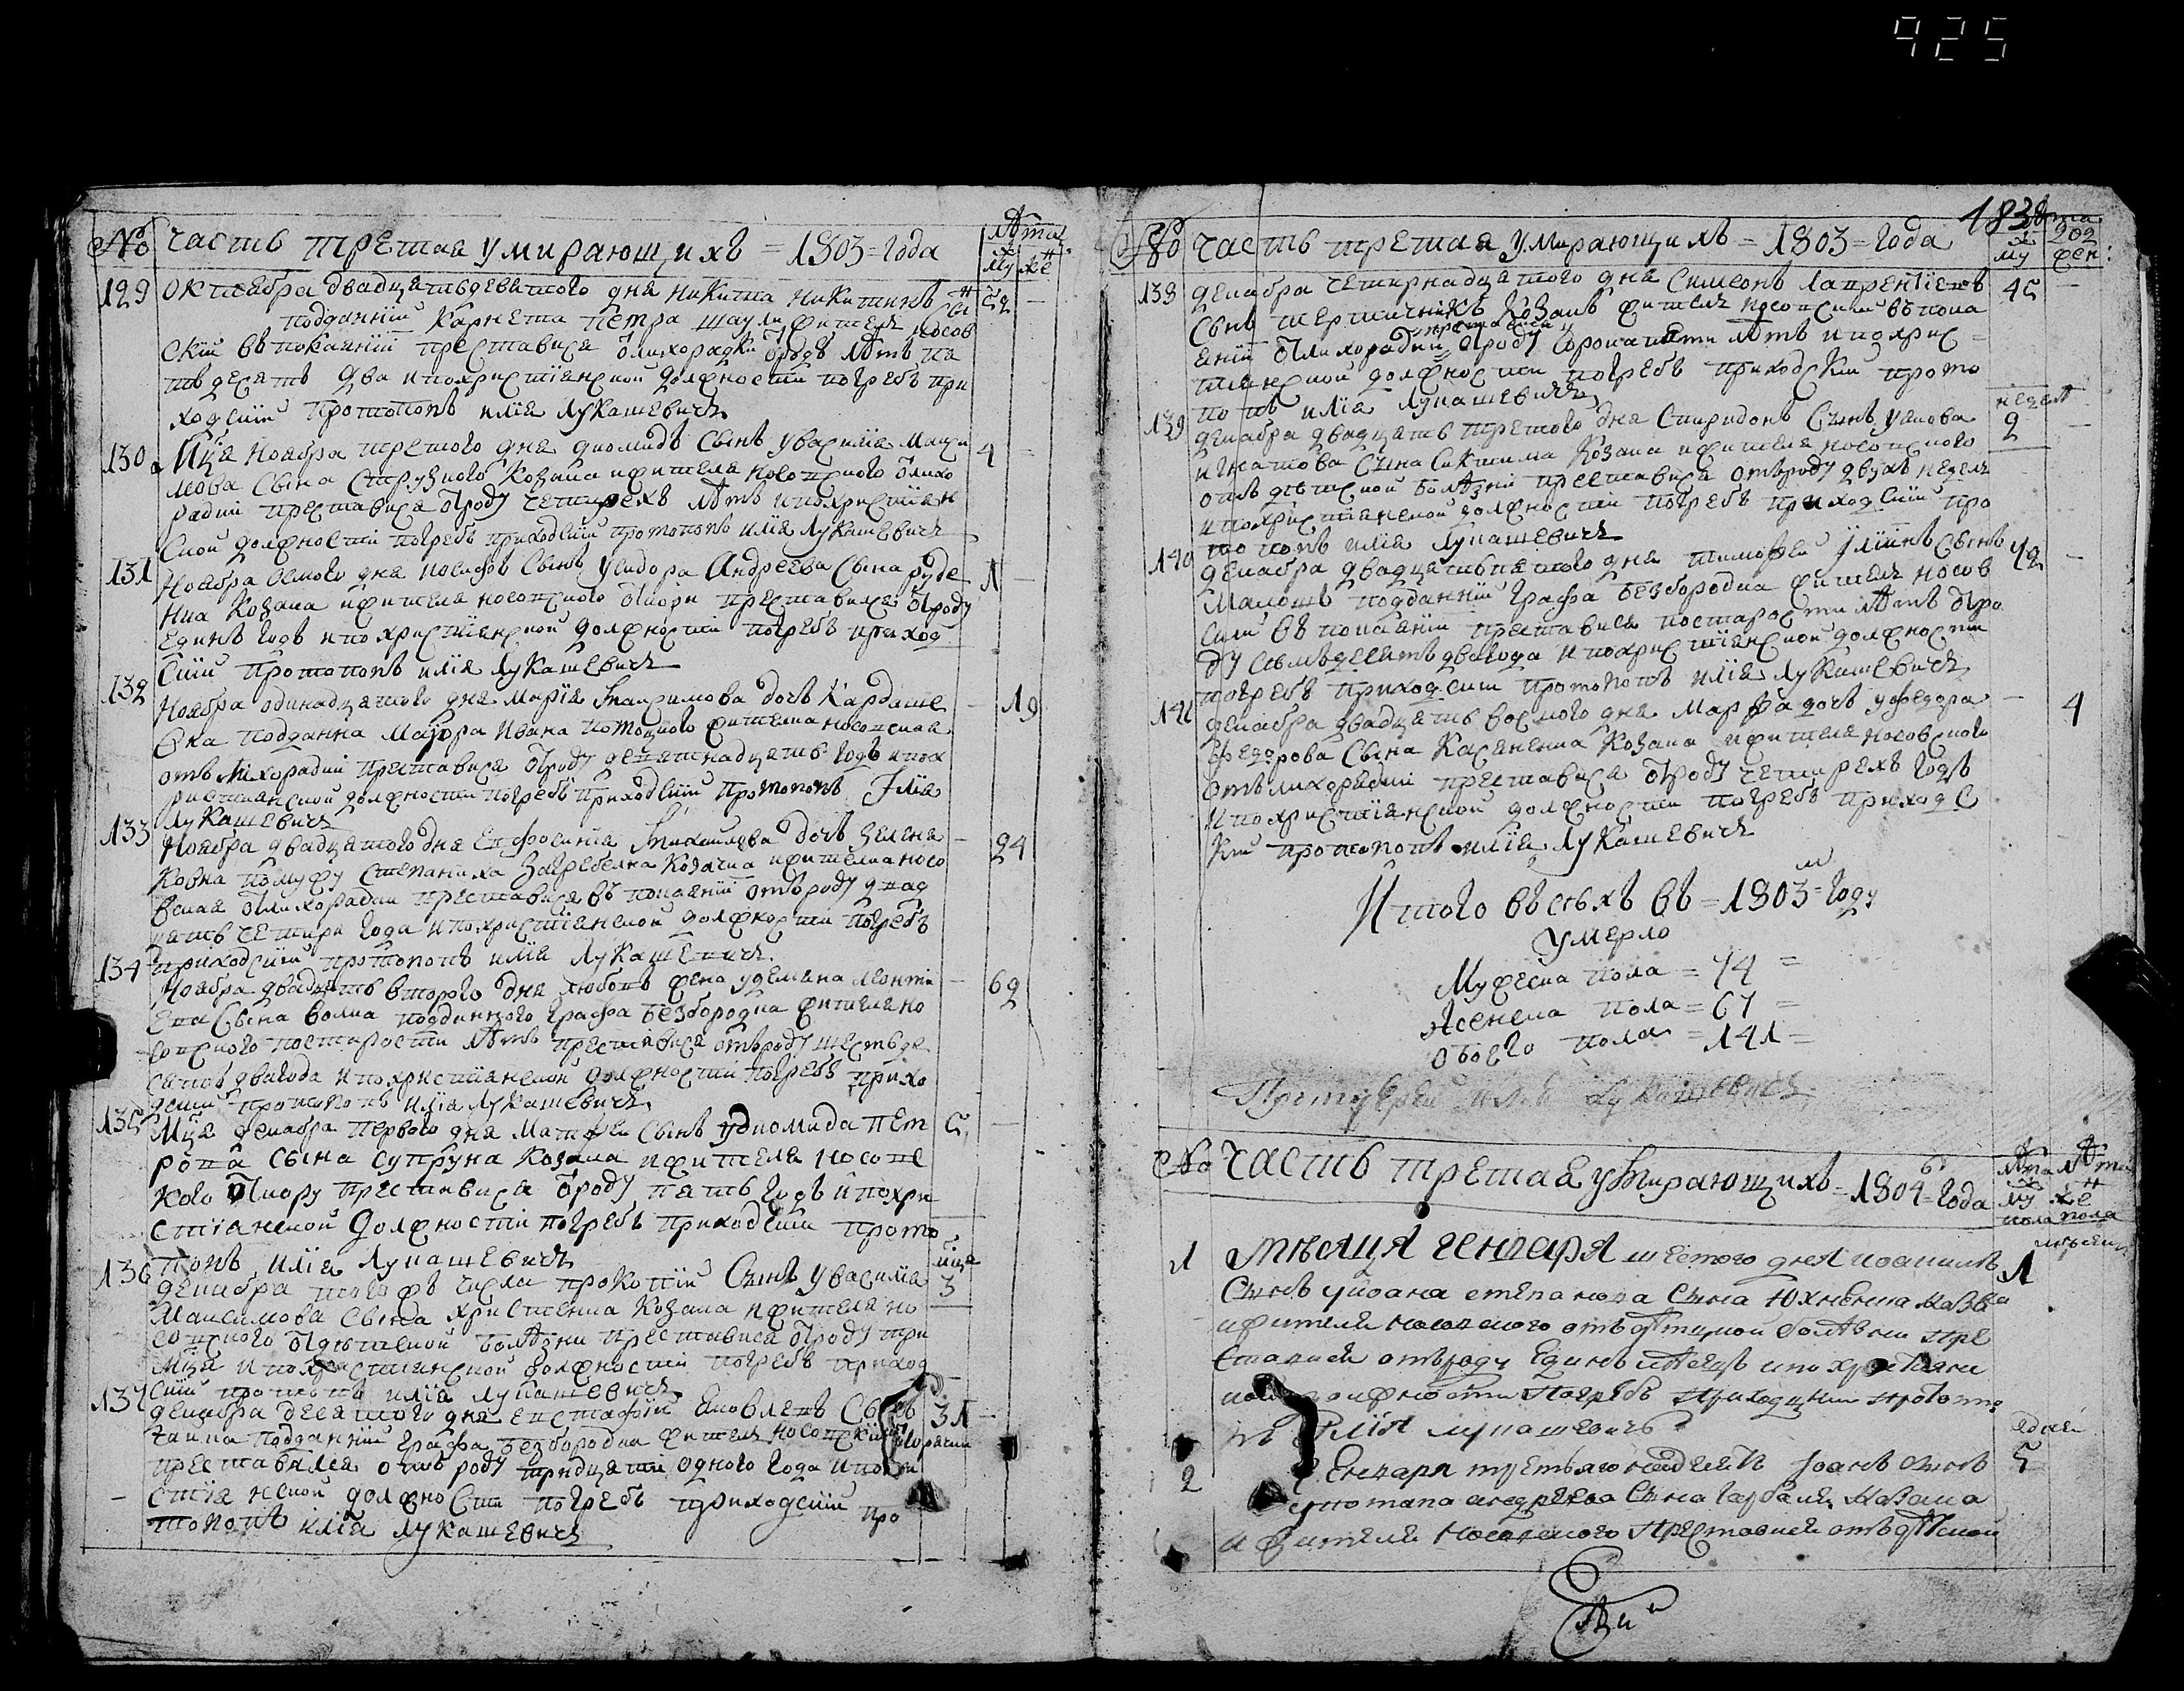 925
No Часть третая умирающихъ = 1803 = года Лѣта му же
129 октября двадцатьдевятого дня Никита Никитинъ 52 —
подданній Карнета Петра житель носов
скій въ покаяніи преставися ѿ лихорадки ѿродъ лѣтъ пя
тьдесятъ два и похристіянской должности погребъ при
ходскій протопопъ илія Лукашевичъ
130 Мца Ноября третого дня диомидъ Сынъ увасилія 4 —
Сына Струзного Козака ижителя носовского ѿлихо
радки преставися ѿроду четирехъ лѣтъ и похристіян
ской должности погребъ приходскій протопопъ илія Лукашевичъ
131 Ноября осмого дня иосифъ Сынъ усидора Андреева Сына руде 1 —
нка Козака ижителя носовского ѿкори преставися ѿроду
единъ годъ и похристіянской должности погребъ приход
скій протопопъ илія Лукашевичъ
132 Ноября одинадцятого дня Марія дочъ Кардаше — 19
вна подданна Маіора Ивана потоцкого жителка носовская
отъ лихорадки преставися ѿроду девятнадцать годъ и пох
ристиянской должности погребъ приходскій протопопъ Iлія
Лукашевичъ
133 Ноября двадцятого дня Ефросинія дочъ Зелене — 24
ковна помужу Степаниха Загребелна Козачка ижителка носо
вская ѿлихорадки преставися въ покаяніи отъроду двад
цать четири года и похристіянской должности погребъ
приходскій протопопъ илія Лукашевичъ.
134 Ноября двадцять второго дня любовъ жена удемяна леонти — 62
ева Сына волка подданного графа безбородка жителя но
совского постарости лѣтъ преставися отъроду шестьде
сятъ двагода и похристіянской должности погребъ прихо
дскій протопопъ илія Лукашевичъ
135 Мця декабря первого дня Матфей Сынъ удиомида пет 5 —
рова Сына Супруна козака ижителя носовс
кого ѿкору преставися ѿроду пять годъ и похри
стіянской должности погребъ приходскій прото
попъ илія Лукашевичъ
136 декабря того жъ числа прокопій Сынъ увасилія мця 3
Максимова Сына христенка Козака ижителя но
совского ѿдѣтской болѣзни преставися ѿроду три
мця и похристиянской должности погребъ приход
скій протопопъ илія Лукашевичъ
137 декабря десятого дня Евстафій Яковлевъ Сынъ 31 —
Чайка подданній графа безбородка житель носовскій ѿгорячки
преставился отъ роду тридцати одного года и похри
стіянской должности погребъ приходскій про
топопъ илія Лукашевичъ
183
No Часть третая умирающихъ = 1803 = года Лѣта му жен:
138 декабря четирнадцятого дня Симеонъ Лаврентіевъ 45 —
Сынъ Козакъ житель носовскій въ пока
яніи ѿлихорадки преставися ѿроду сорокапяти лѣтъ и похрис
тиянской должности погребъ приходскій прото
попъ илія Лукашевичъ
139 декабря двадцать третого дня Спиридонъ Сынъ уякова недел 2 —
игнатова Сына Козака ижителя носовского
отъ дѣтской болѣзни преставися отъроду двухъ недель
и похристіянской должности погребъ приходскій про
топопъ илія Лукашевичъ
140 декабря двадцятьпятого дня тимофей Уліянъ Сынъ 72 —
Малошъ подданній Графа безбородка житель носов
скій въ покаяніи преставися постарости лѣтъ ѿро
ду семъдесятъ двагода и похристіянской должности
погребъ приходскій протопопъ илія Лукашевичъ
141 декабря двадцять восмого дня Марфа дочъ уфедора — 4
федорова Сына Касяненка Козака ижителя носовского
отъ лихорадки преставися ѿроду четирехъ годъ
и похристіянской должности погребъ приходс
кій протопопъ илія Лукашевичъ
Итого въсѣхъ въ = 1803-м году
Умерло
Мужеска пола = 74 =
Женска пола = 67 =
обоего пола = 141 =
Протоіерей Илія Лукашевичъ
No Часть третая умирающихъ = 1804 = года Лѣта Лѣта му же пола пола
1 мѣсяця генваря шестого дня иоакимъ мѣсяцъ 1
Сынъ уйоана степанова Сына Юхименка казака
ижителя носовского отъ дѣтцкой болѣзни пре
ставися отъроду единъ мѣсяцъ и по християн
ской должности погребъ приходцкій протопо
пъ Илія лукашевичъ
2 Генваря третьягонадцять Іоанъ Сынъ 5
употапа андреева Сына козака
и жителя носовского преставися отъ дѣтской